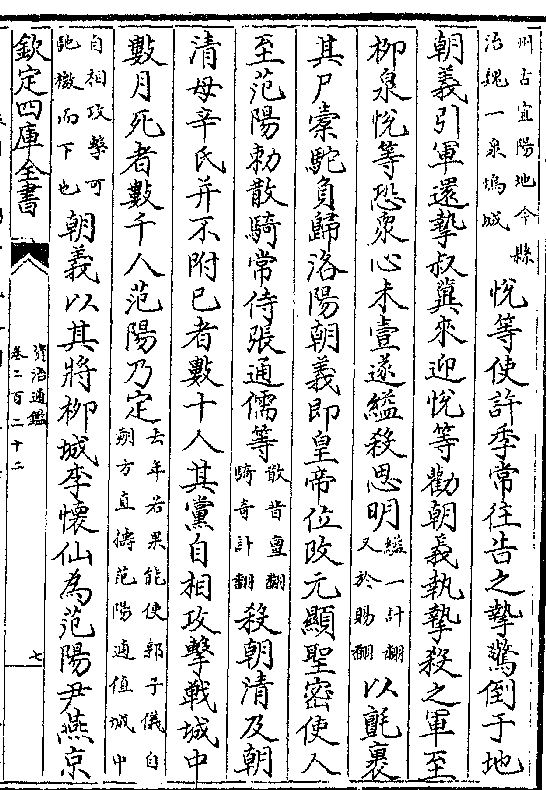 州古宜陽地今縣
治魏一泉塢城
悅等使許季常往告之摯驚倒于地
朝義引軍還摯叔冀來迎悅等勸朝義執摯殺之軍至
柳泉悅等恐衆心未壹遂縊殺思明
縊一計翻
又於賜翻
以氊裹
其尸橐駝負歸洛陽朝義即皇帝位改元顯聖密使人
至范陽勅散騎常侍張通儒等
散昔亶翻
騎奇計翻
殺朝清及朝
清母辛氏并不附已者數十人其黨自相攻擊戰城中
數月死者數千人范陽乃定
去年若果能使郭子儀自
朔方直擣范陽適值城中
自相攻擊可
馳檄而下也
朝義以其將柳城李懷仙為范陽尹燕京
欽定四庫全書
資治通鑑
卷二百二十二
七